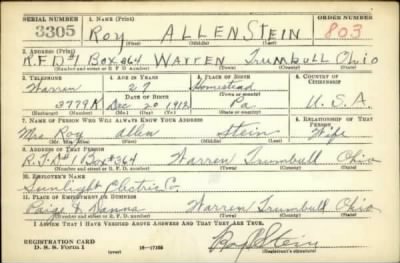 SERIAL NUMBER 1. NAME (Print) ORDER NUMBER
3305 ROY ALLEN STEIN 803
(First) (Middle) (Last)
2. ADDRESS (Print)
R.F.D#1 BOX #364 WARREN Trumbull Ohio
(Number and street or R. F. D. number) (Town) (County) (State)
3. TELEPHONE 4. AGE IN YEARS 5. PLACE OF BIRTH 6. COUNTRY OF CITIZENSHIP
Warren 27 Homestead
(Town or county)
3779R Dec 20 1912 Pa. U.S.A.
(Exchange) (Number) (Mo.) (Day) (Yr.) (State or country)
7. NAME OF PERSON WHO WILL ALWAYS KNOW YOUR ADDRESS 8. RELATIONSHIP OF THAT PERSON
Mrs Roy allen Stein Wife
(Mr., Mrs., Miss) (First) (Middle) (Last)
9. ADDRESS OF THAT PERSON
R.F.D#1 Box #364 Warren Trumbull Ohio
(Number and street or R. F. D. number) (Town) (County) (State)
10. EMPLOYER'S NAME
Sunlight Electric Co.
11. PLACE OF EMPLOYMENT OR BUSINESS
Paige & Dana Warren Trumbull Ohio
(Number and street or R. F. D. number) (Town) (County) (State)
I AFFIRM THAT I HAVE VERIFIED ABOVE ANSWERS AND THAT THEY ARE TRUE.
REGISTRATION CARD
D. S. S. Form 1 16—17105 Roy Stein
(Registrant's signature)